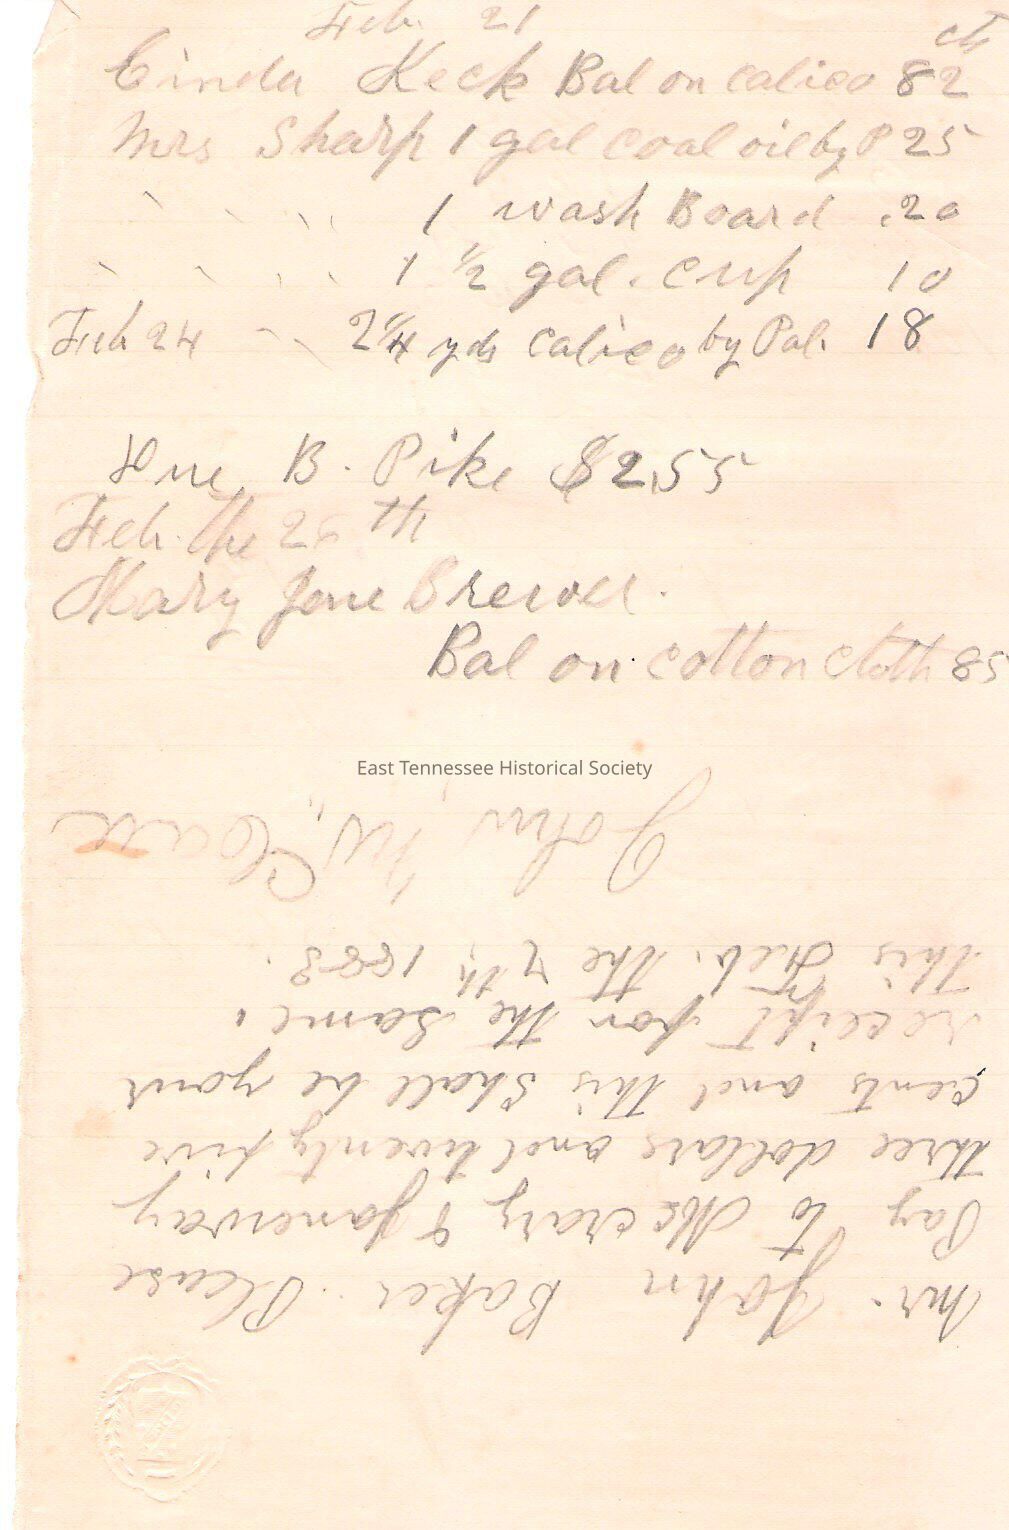 Feb. 21
cts
Cinda Keck Bal on calico 82
Mrs Sharp 1 gal coal oil by P 25
" " 1 wash Board .20
" " 1 1/2 gal. cup 10
Feb 24 " 2 1/4 yds calico by Pal. 18
Due B. Pike $2.55
Feb. the 25 th
Mary Jane Brewer.
Bal on cotton cloth 85
East Tennessee Historical Society
Mr. John Baker. Please
Pay to McCrary & Janeway
three dollars and twenty five
cents and this shall be your
receipt for the same.
This Feb. the 7th, 1883.
John W. Cloar